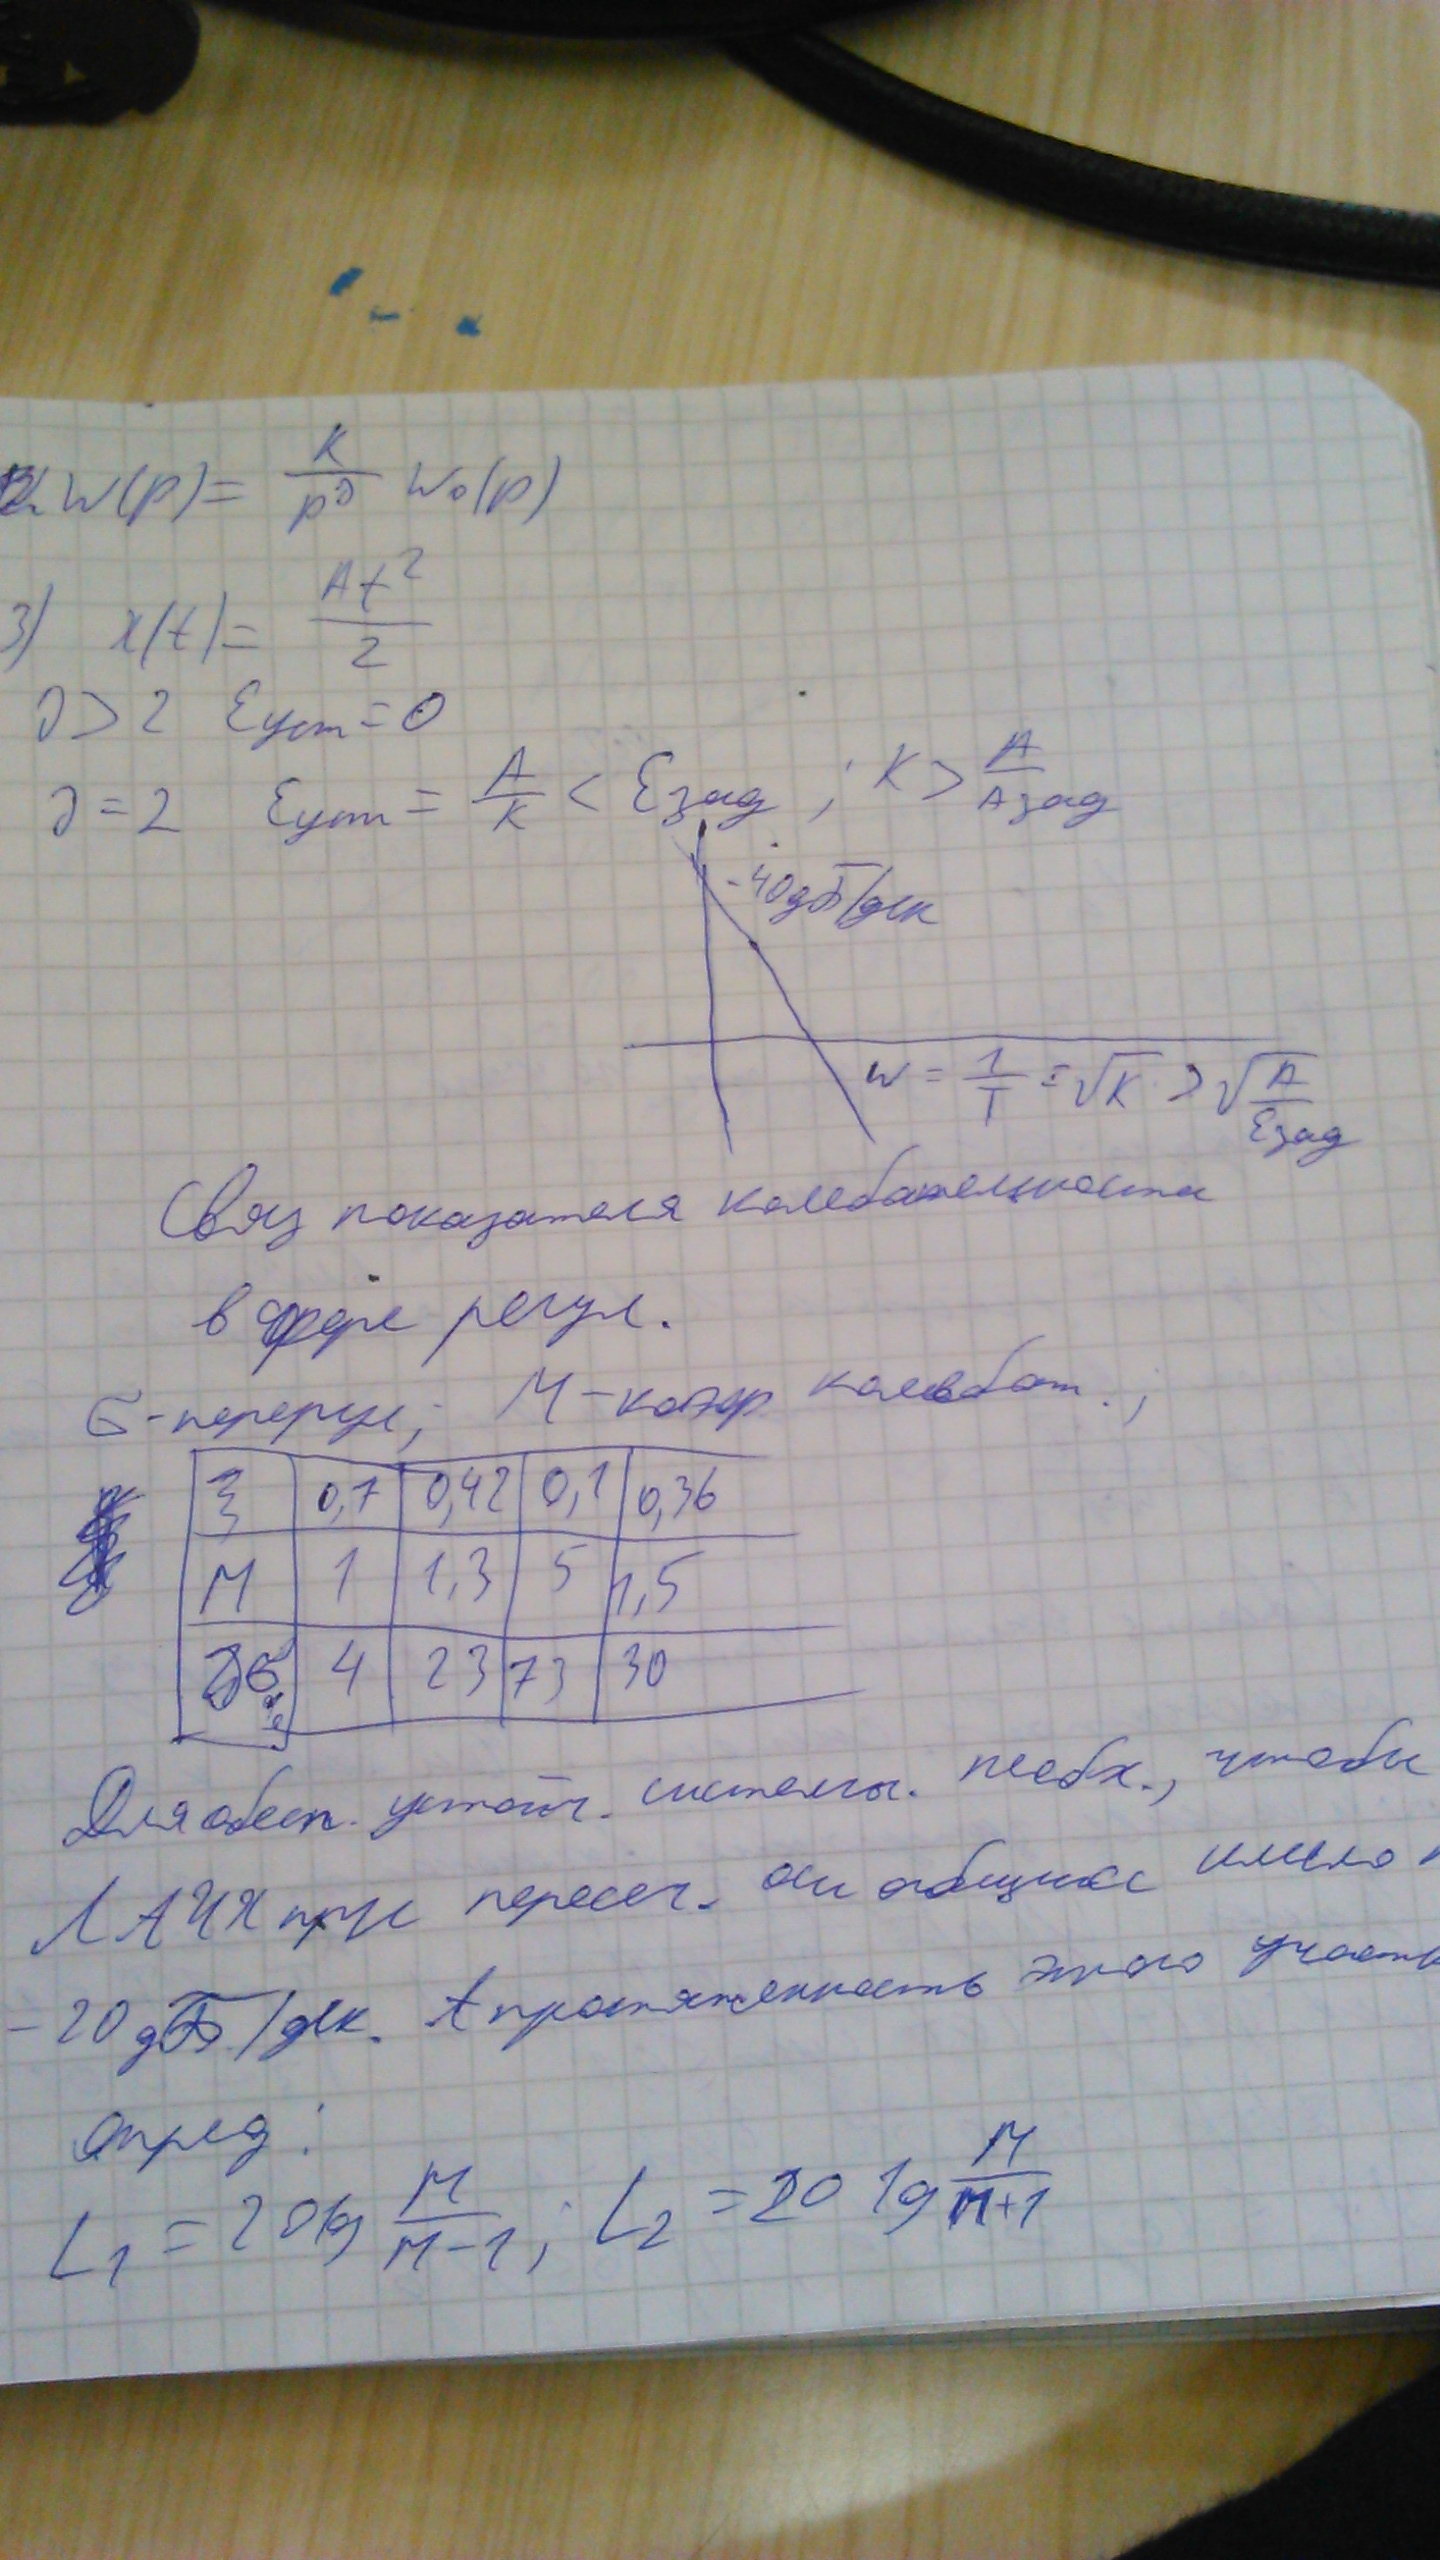 W(p) = K/p^∂ W₀(p)
3) x(t) = At²/2
∂ > 2 Eуст = 0
∂ = 2 Eуст = A/K < Eзад ; K > A/Aзад
-40 дБ/дек
w = 1/T = √K > √(A/Eзад)
Связ показателя колебательности
в сфере регул.
σ - перерегул; M - коэф колебат. ;
ξ 0,7 0,42 0,1 0,36
M 1 1,3 5 1,5
σ % 4 23 73 30
Для обесп. устойч. системы. необх., чтобы
ЛАЧХ при пересеч. оси абцисс имело
-20 дБ/дек. А протяженность этого участк
опред:
L₁ = 20 lg M/(M-1) ; L₂ = 20 lg M/(M+1)